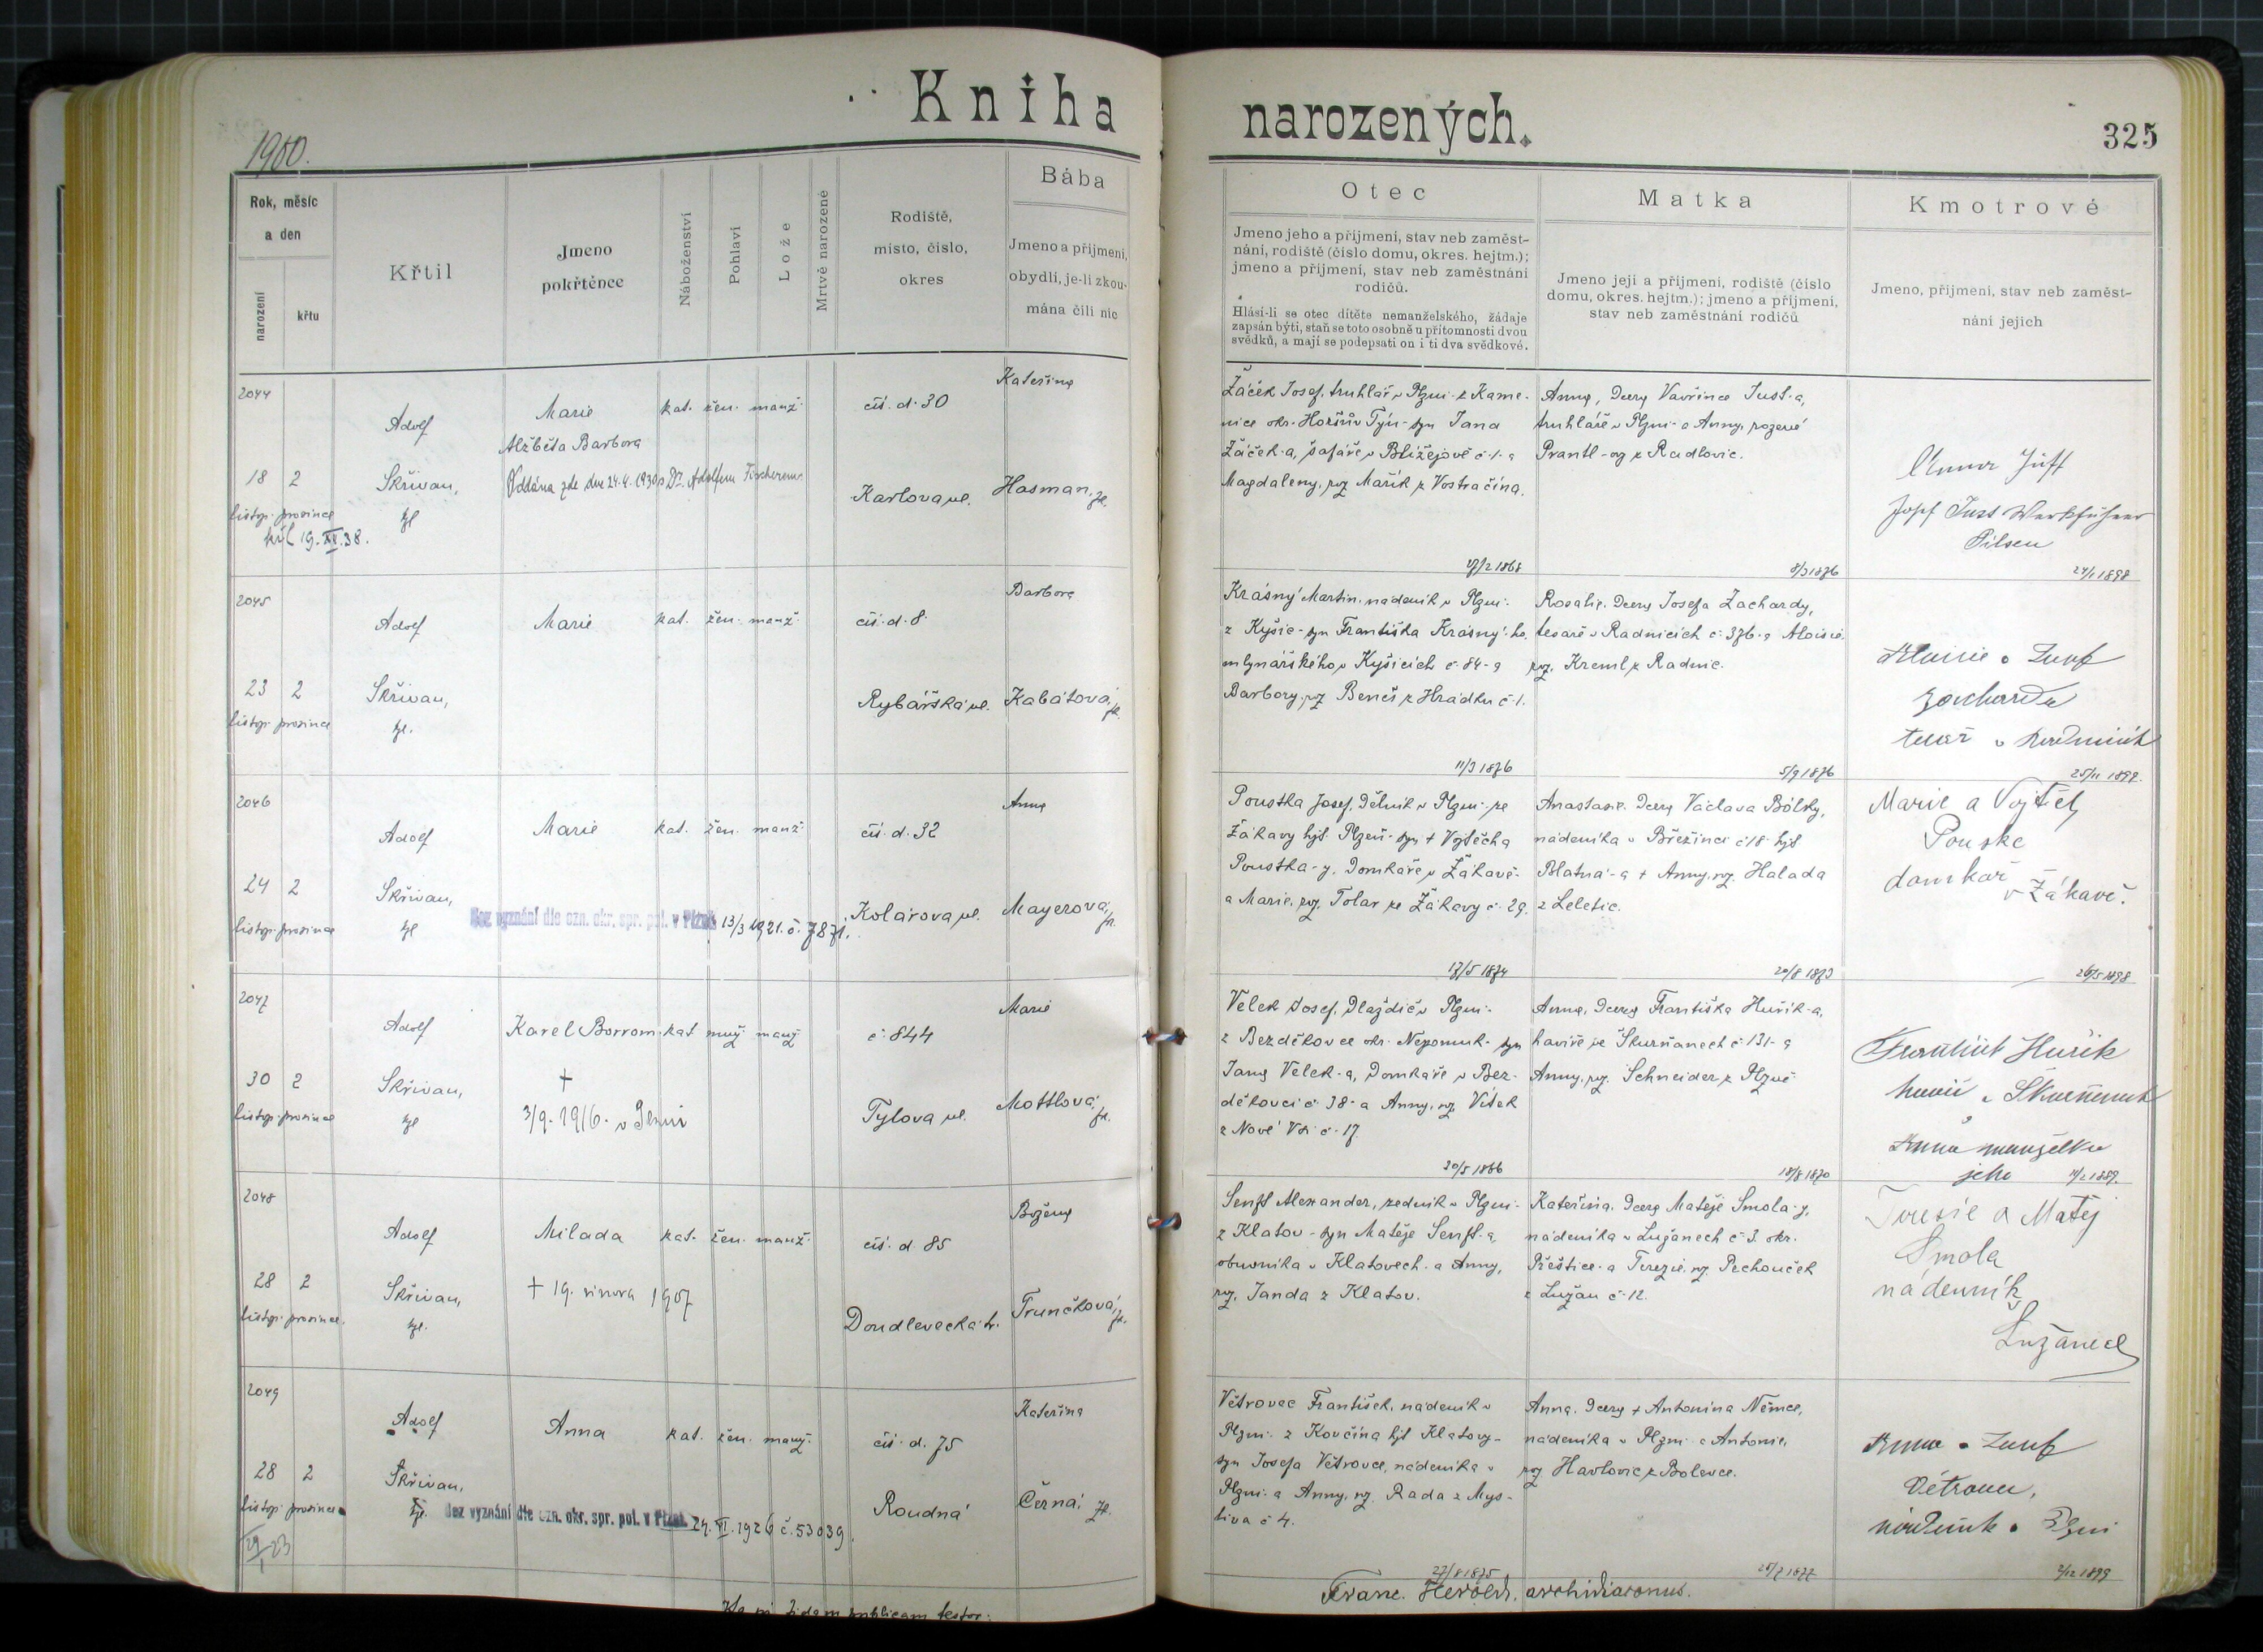 Kniha narozených.
325
1900.
Rok, měsíc a den
narození
křtu
Křtil
Jmeno pokřtěnce
Náboženství
Pohlaví
Lože
Mrtvě narozené
Rodiště, místo, číslo, okres
Bába
Jmeno a příjmení, obydlí, je-li zkoumána čili nic
Otec
Jmeno jeho a příjmení, stav neb zaměst-
nání, rodiště (číslo domu, okres. hejtm.);
jmeno a příjmení, stav neb zaměstnání
rodičů.
Hlásí-li se otec dítěte nemanželského, žádaje
zapsán býti, staň se toto osobně u přítomnosti dvou
svědků, a mají se podepsati on i ti dva svědkové.
Matka
Jmeno její a příjmení, rodiště (číslo
domu, okres. hejtm.); jmeno a příjmení,
stav neb zaměstnání rodičů
Kmotrové
Jmeno, příjmení, stav neb zaměst-
nání jejich
2044
18 2
listop. prosince
19.XII.38.
Adolf
Skřivan,
Marie
Alžběta Barbora
Oddána zde dne 24.4.1930 s Dr. Adolfem
kat. žen. manž.
čís. d. 30
Karlova ul.
Kateřina
Hasman, zk.
Žáček Josef, truhlář v Plzni z Kame-
nice okr. Horšův Týn- syn Jana
Žáček-a, šafáře v Blížejově č. 1. a
Magdaleny, roz. Mařík z Vostračína.
Anna, dcera Vavřince Just-a,
truhláře v Plzni a Anny, rozené
Prantl-ov z Radlovic.
Josef Just Werkführer
Pilsen
2045
23 2
listop. prosince
Adolf
Skřivan,
Marie
kat. žen. manž.
čís. d. 8.
Rybářská ul.
Barbora
Kabátová, zk.
Krásný Martin, nádeník v Plzni
z Kyšic- syn Františka Krásný-ho,
mlynářského v Kyšicích č. 84- a
Barbory, roz. Beneš z Hrádku č. 1.
11/3 1876
Rosalie, dcera Josefa Zachardy,
tesaře v Radnicích č. 376. a Aloisie,
roz. Kreml z Radnic.
5/9 1876
2046
24 2
listop. prosince
Adolf
Skřivan,
Marie
kat. žen. manž.
Bez vyznání dle ozn. okr. spr. pol. v Plzni 13/3 1921. č. 7871.
čís. d. 32
Kolárova ul.
Anna
Mayerová, zk.
Poustka Josef, dělník v Plzni ze
Žákavy hjt. Plzeň- syn + Vojtěcha
Poustka-y, domkáře v Žákavě-
a Marie, roz. Tolar ze Žákavy č. 29.
17/5 1874
Anastasie, dcera Václava Bólky,
nádeníka v Březince č. 18 hjt.
Blatná- a + Anny, roz. Halada
z Leletic.
Marie a Vojtěch
Pouska
domkař
v Žákavě.
26/5 1898
2047
30 2
listop. prosince
Adolf
Skřivan,
Karel Borrom.
+
3/9. 1916. v Plzni
kat. muž. manž.
č. 844
Tylova ul.
Marie
Mottlová, zk.
Velek Josef, dlaždič v Plzni
z Bezděkovce okr. Nepomuk- syn
Jana Velek-a, domkáře v Bez-
děkovci č. 38- a Anny, roz. Vítek
z Nové Vsi č. 17.
Anna, dcera Františka Huřík-a,
havíře ve Škurňanech č. 131- a
Anny, roz. Schneider z Plzně
18/8 1870
František Huřík
Anna manželka
jeho
2048
28 2
listop. prosince.
Adolf
Skřivan,
Milada
+ 19. února 1907
kat. žen. manž.
čís. d. 85
Doudlevecká tř.
Božena
Trunečková, zk.
Senft Alexander, zedník v Plzni-
z Klatov- syn Matěje Senft-a,
obuvníka v Klatovech- a Anny,
roz. Janda z Klatov.
Kateřina, dcera Matěje Smola-y,
nádeníka v Lužanech č. 3. okr.
Přeštice- a Terezie, roz. Pechouček
z Lužan č. 12.
Terezie a Matěj
Smola
nádenník
v
Lužanech
2049
28 2
listop. prosince
Adolf
Skřivan,
Anna
kat. žen. manž.
Bez vyznání dle ozn. okr. spr. pol. v Plzni. 24. XI. 1926 č. 53039.
čís. d. 75
Roudná
Kateřina
Černá, zk.
Větrovec František, nádeník v
Plzni- z Kovčína hjt. Klatovy-
syn Josefa Větrovce, nádeníka v
Plzni- a Anny, roz. Rada z Mys-
liva č. 4.
27/8 1875
Anna, dcera + Antonína Němce,
nádeníka v Plzni a Antonie,
roz. Havlovic z Bolevce.
Větrovec,
2/12 1899
publicam testor:
Franc. Herold, archidiaconus.